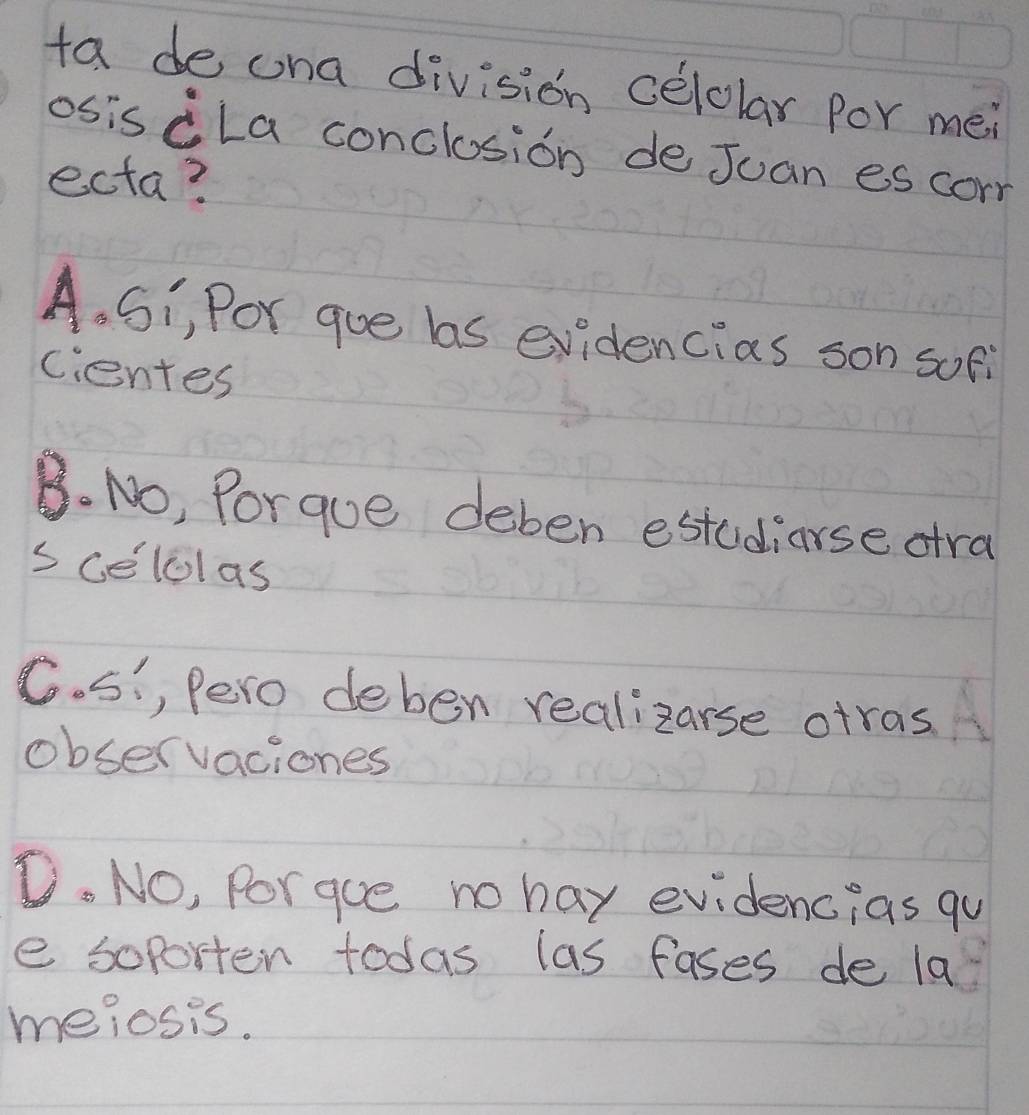 ta de una división célular por mei
osis ¿La conclusión de Juan es corr
ecta?
A. Sí, Por que las evidencias son sufi
cientes
B. No, Porque deben estudiarse otra
s células
C. sí, Pero deben realizarse otras
observaciones
D. No, Por que no hay evidencias qu
e soporten todas las fases de la
meiosis.